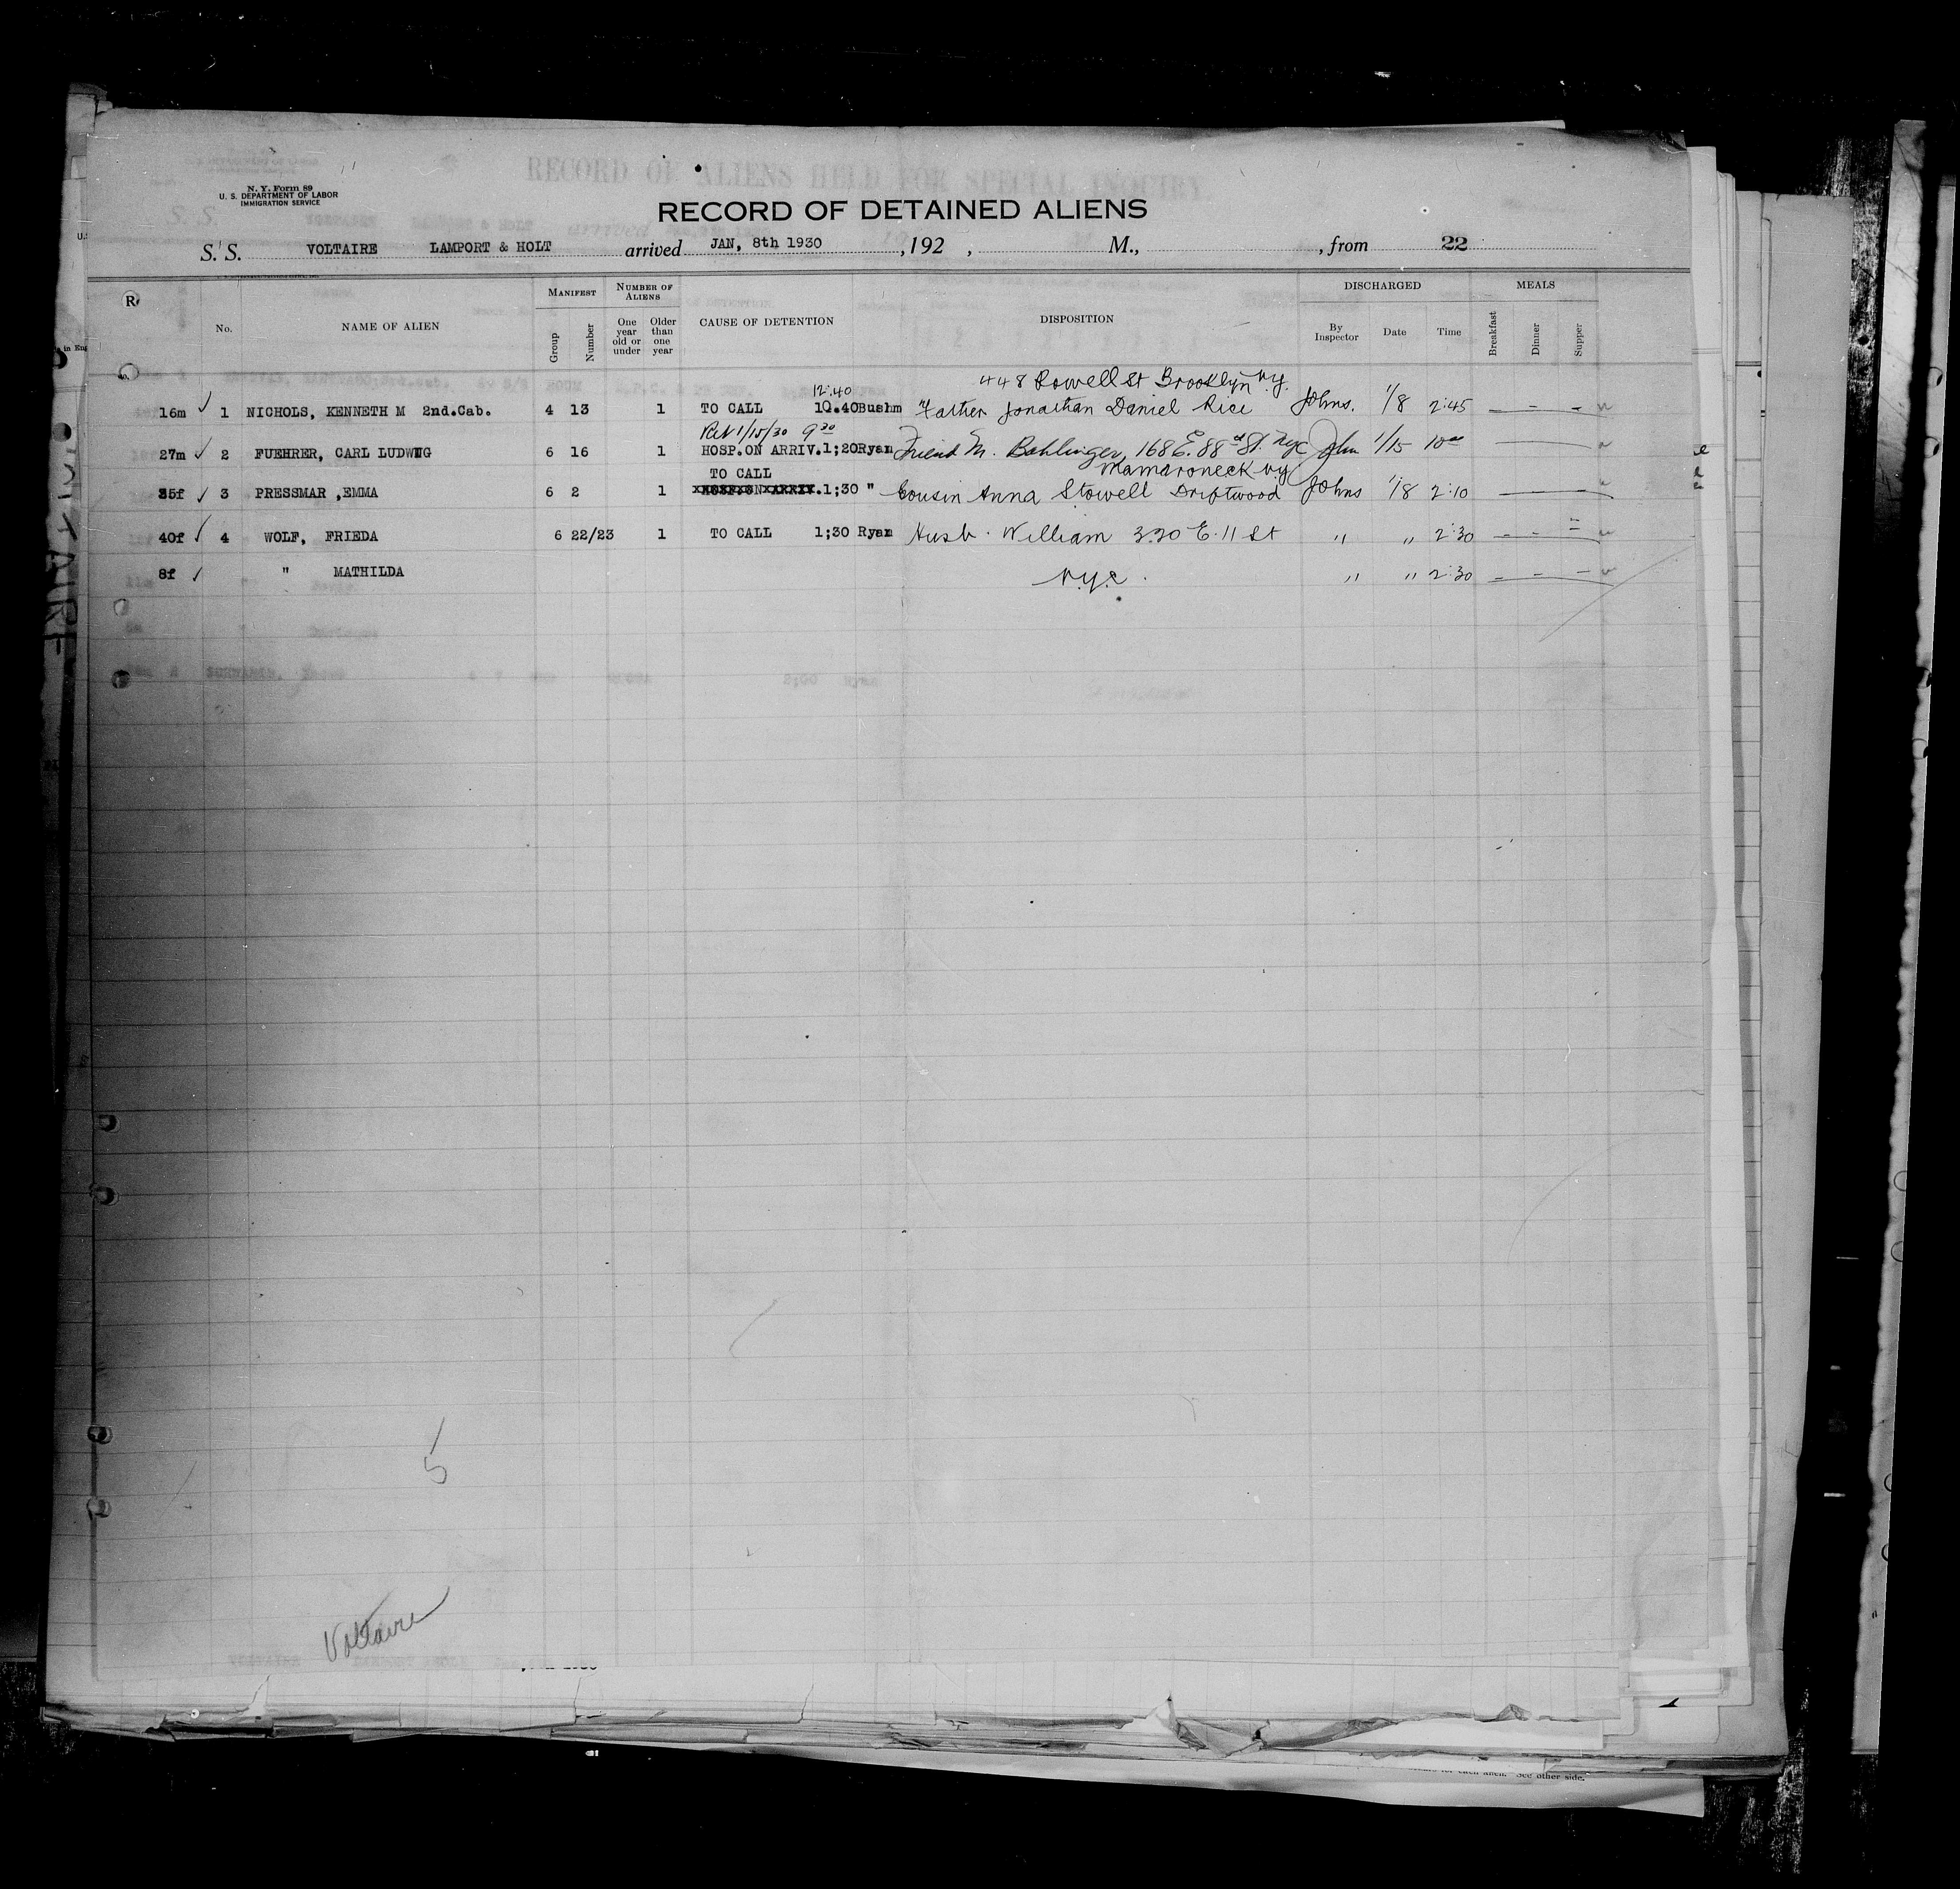 N. Y. Form 89
U. S. DEPARTMENT OF LABOR
IMMIGRATION SERVICE
RECORD OF DETAINED ALIENS
S. S. VOLTAIRE LAMPORT & HOLT arrived JAN, 8th 1930 , 192 , M., , from 22
No. NAME OF ALIEN MANIFEST Group Number NUMBER OF ALIENS One year old or under Older than one year CAUSE OF DETENTION DISPOSITION DISCHARGED By Inspector Date Time MEALS Breakfast Dinner Supper
12:40 448 Powell St Brooklyn N.Y.
16m ✓ 1 NICHOLS, KENNETH M 2nd.Cab. 4 13 1 TO CALL 10.40Bushm Father Jonathan Daniel Rice Johns. 1/8 2:45
Ret 1/15/30 9 30
27m ✓ 2 FUEHRER, CARL LUDWIG 6 16 1 HOSP.ON ARRIV.1;20Ryan Friend M. Bohlinger, 168 E. 88 St. NYC John 1/15 10 00
TO CALL Mamaroneck N.Y.
35f ✓ 3 PRESSMAR ,EMMA 6 2 1 HOSP.ON ARRIV.1;30 " Cousin Anna Stowell Driftwood Johns 1/8 2:10
40f ✓ 4 WOLF, FRIEDA 6 22/23 1 TO CALL 1;30 Ryan Husb. William 320 E. 11 St " " 2:30
8f ✓ " MATHILDA N.Y.C. " " 2:30
5
Voltaire
See other side.